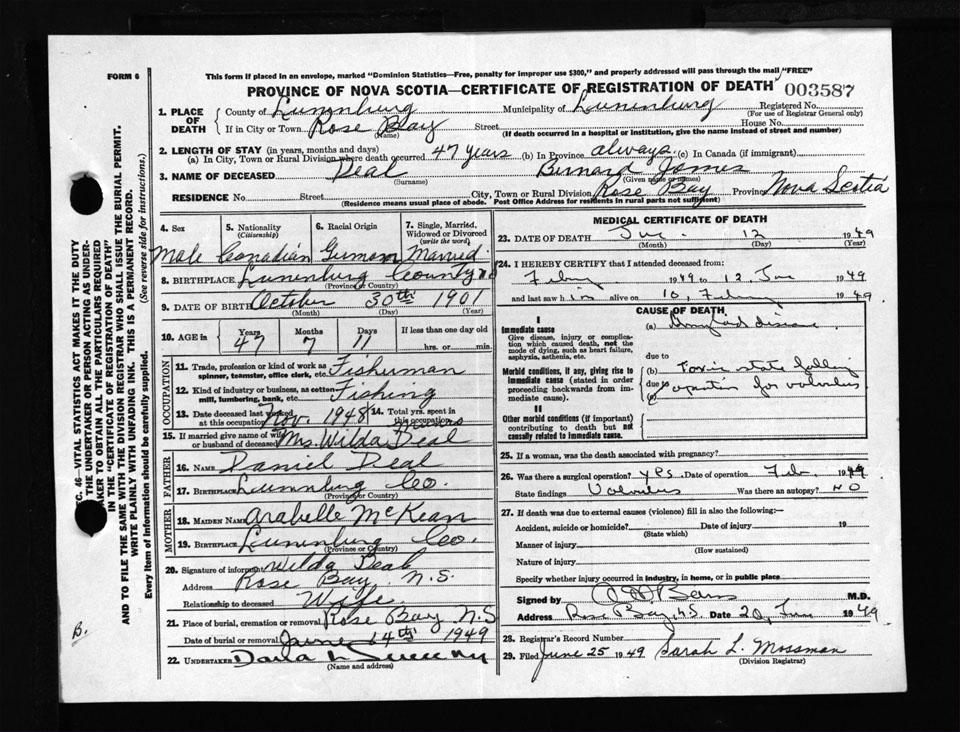 FORM 6
This form if placed in an envelope, marked "Dominion Statistics—Free, penalty for improper use $300," and properly addressed will pass through the mail "FREE"
PROVINCE OF NOVA SCOTIA—CERTIFICATE OF REGISTRATION OF DEATH 003587
1. PLACE OF DEATH
County of Lunenburg Municipality of Lunenburg Registered No.
(For use of Registrar General only)
If in City or Town Rose Bay Street House No.
(Name) (If death occurred in a hospital or institution, give the name instead of street and number)
2. LENGTH OF STAY (in years, months and days)
(a) In City, Town or Rural Division where death occurred 47 years (b) In Province always (c) In Canada (if immigrant)
3. NAME OF DECEASED Deal Bernard James
(Surname) (Given name or names)
RESIDENCE No. Street City, Town or Rural Division Rose Bay Province Nova Scotia
(Residence means usual place of abode. Post Office Address for residents in rural parts not sufficient)
4. Sex 5. Nationality (Citizenship) 6. Racial Origin 7. Single, Married, Widowed or Divorced (write the word)
Male Canadian German Married
8. BIRTHPLACE Lunenburg County N.S
(Province or Country)
9. DATE OF BIRTH October 30th 1901
(Month) (Day) (Year)
10. AGE in Years Months Days If less than one day old
47 7 11 hrs. or min.
OCCUPATION
11. Trade, profession or kind of work as spinner, teamster, office clerk, etc. Fisherman
12. Kind of industry or business, as cotton mill, lumbering, bank, etc. Fishing
13. Date deceased last worked at this occupation Nov. 1948 14. Total yrs. spent in this occupation
15. If married give name of wife or husband of deceased Mrs. Wilda Deal
FATHER
16. NAME Daniel Deal
17. BIRTHPLACE Lunenburg Co.
(Province or Country)
MOTHER
18. MAIDEN NAME Arabelle McKean
19. BIRTHPLACE Lunenburg Co.
(Province or Country)
20. Signature of informant Wilda Deal
Address Rose Bay, N.S.
Relationship to deceased Wife
21. Place of burial, cremation or removal Rose Bay N.S
Date of burial or removal June 14th 1949
22. UNDERTAKER
(Name and address)
MEDICAL CERTIFICATE OF DEATH
23. DATE OF DEATH June 12 1949
(Month) (Day) (Year)
24. I HEREBY CERTIFY that I attended deceased from
1949 to 12 June 1949
and last saw him alive on 10, 1949
CAUSE OF DEATH
I
Immediate cause
Give disease, injury or complication which caused death, not the mode of dying, such as heart failure, asphyxia, asthenia, etc.
(a) disease
due to
Morbid conditions, if any, giving rise to immediate cause (stated in order proceeding backwards from immediate cause).
(b) Toxic state
due to
(c) operation for volvulus
II
Other morbid conditions (if important) contributing to death but not causally related to immediate cause.
25. If a woman, was the death associated with pregnancy?
26. Was there a surgical operation? yes. Date of operation Feb. 1949
State findings Volvulus Was there an autopsy? NO
27. If death was due to external causes (violence) fill in also the following:—
Accident, suicide or homicide? Date of injury 19
(State which)
Manner of injury
(How sustained)
Nature of injury
Specify whether injury occurred in industry, in home, or in public place
Signed by M.D.
Address Rose Bay, N.S. Date 20 June 1949
28. Registrar's Record Number
29. Filed June 25 1949 Sarah L. Mossman
(Division Registrar)
SEC. 46—VITAL STATISTICS ACT MAKES IT THE DUTY
OF THE UNDERTAKER OR PERSON ACTING AS UNDERTAKER TO OBTAIN ALL THE PARTICULARS REQUIRED
IN THE "CERTIFICATE OF REGISTRATION OF DEATH"
AND TO FILE THE SAME WITH THE DIVISION REGISTRAR WHO SHALL ISSUE THE BURIAL PERMIT.
WRITE PLAINLY WITH UNFADING INK. THIS IS A PERMANENT RECORD.
Every item of Information should be carefully supplied. (See reverse side for instructions.)
B.